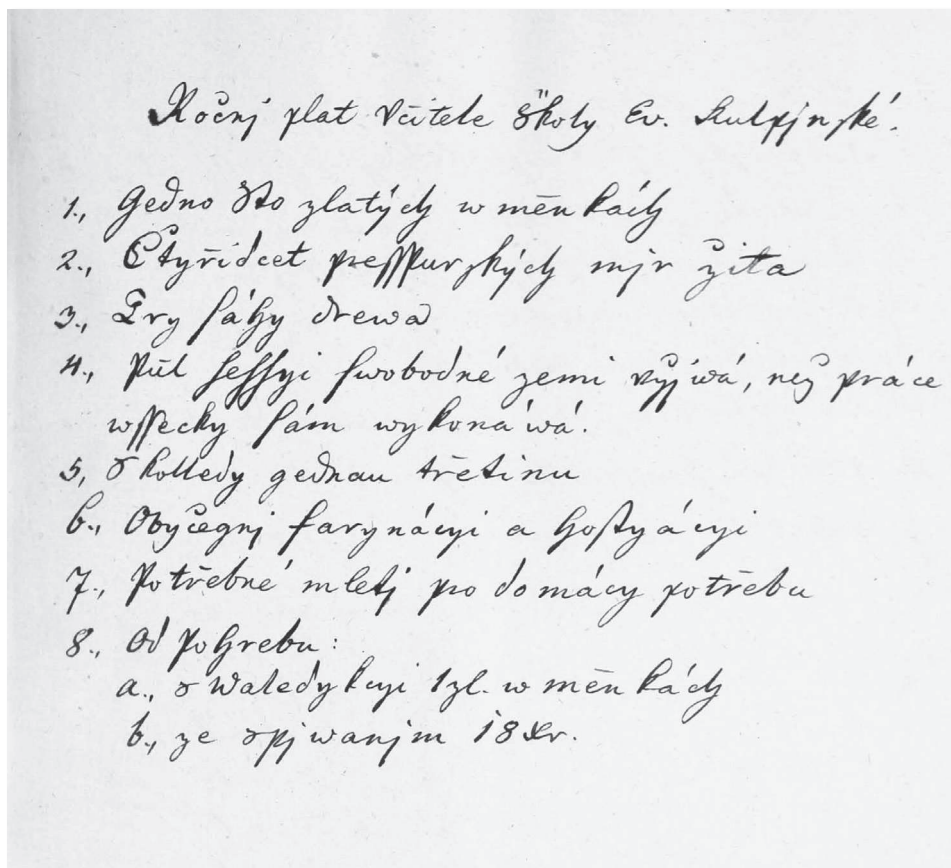 Ročnj plat Včitele školy Ev. Kulpjnské.
1., Gedno sto zlatých w měnkách
2., Čtyřidcet presspurských mjr žita
3., Try sáhy drewa
4., Půl sessyi swobodné zemi vžjwá, než práce
wssecky sám wykonáwá.
5., z kolledy gednau třetinu
6., Obyčegnj farynácyi a hostyácyi
7., Potřebné mletj pro domácy potřebu
8., Od Pohrebu:
a., s Waledykcyi 1 zl. w měnkách
b., ze spjwanjm 18 xr.